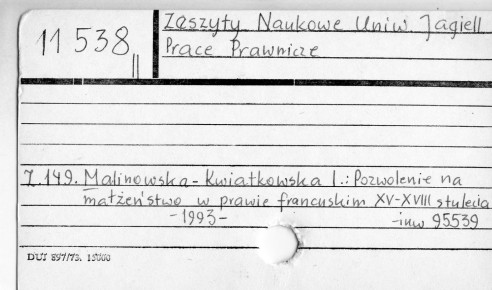 11 538 II
Zeszyty Naukowe Uniw. Jagiell
Prace Prawnicze
Z.149. Malinowska-Kwiatkowska I.: Pozwolenie na
małżeństwo w prawie francuskim XV-XVIII stulecia
-1993- -inw 95539
DUJ 897/73. 15000